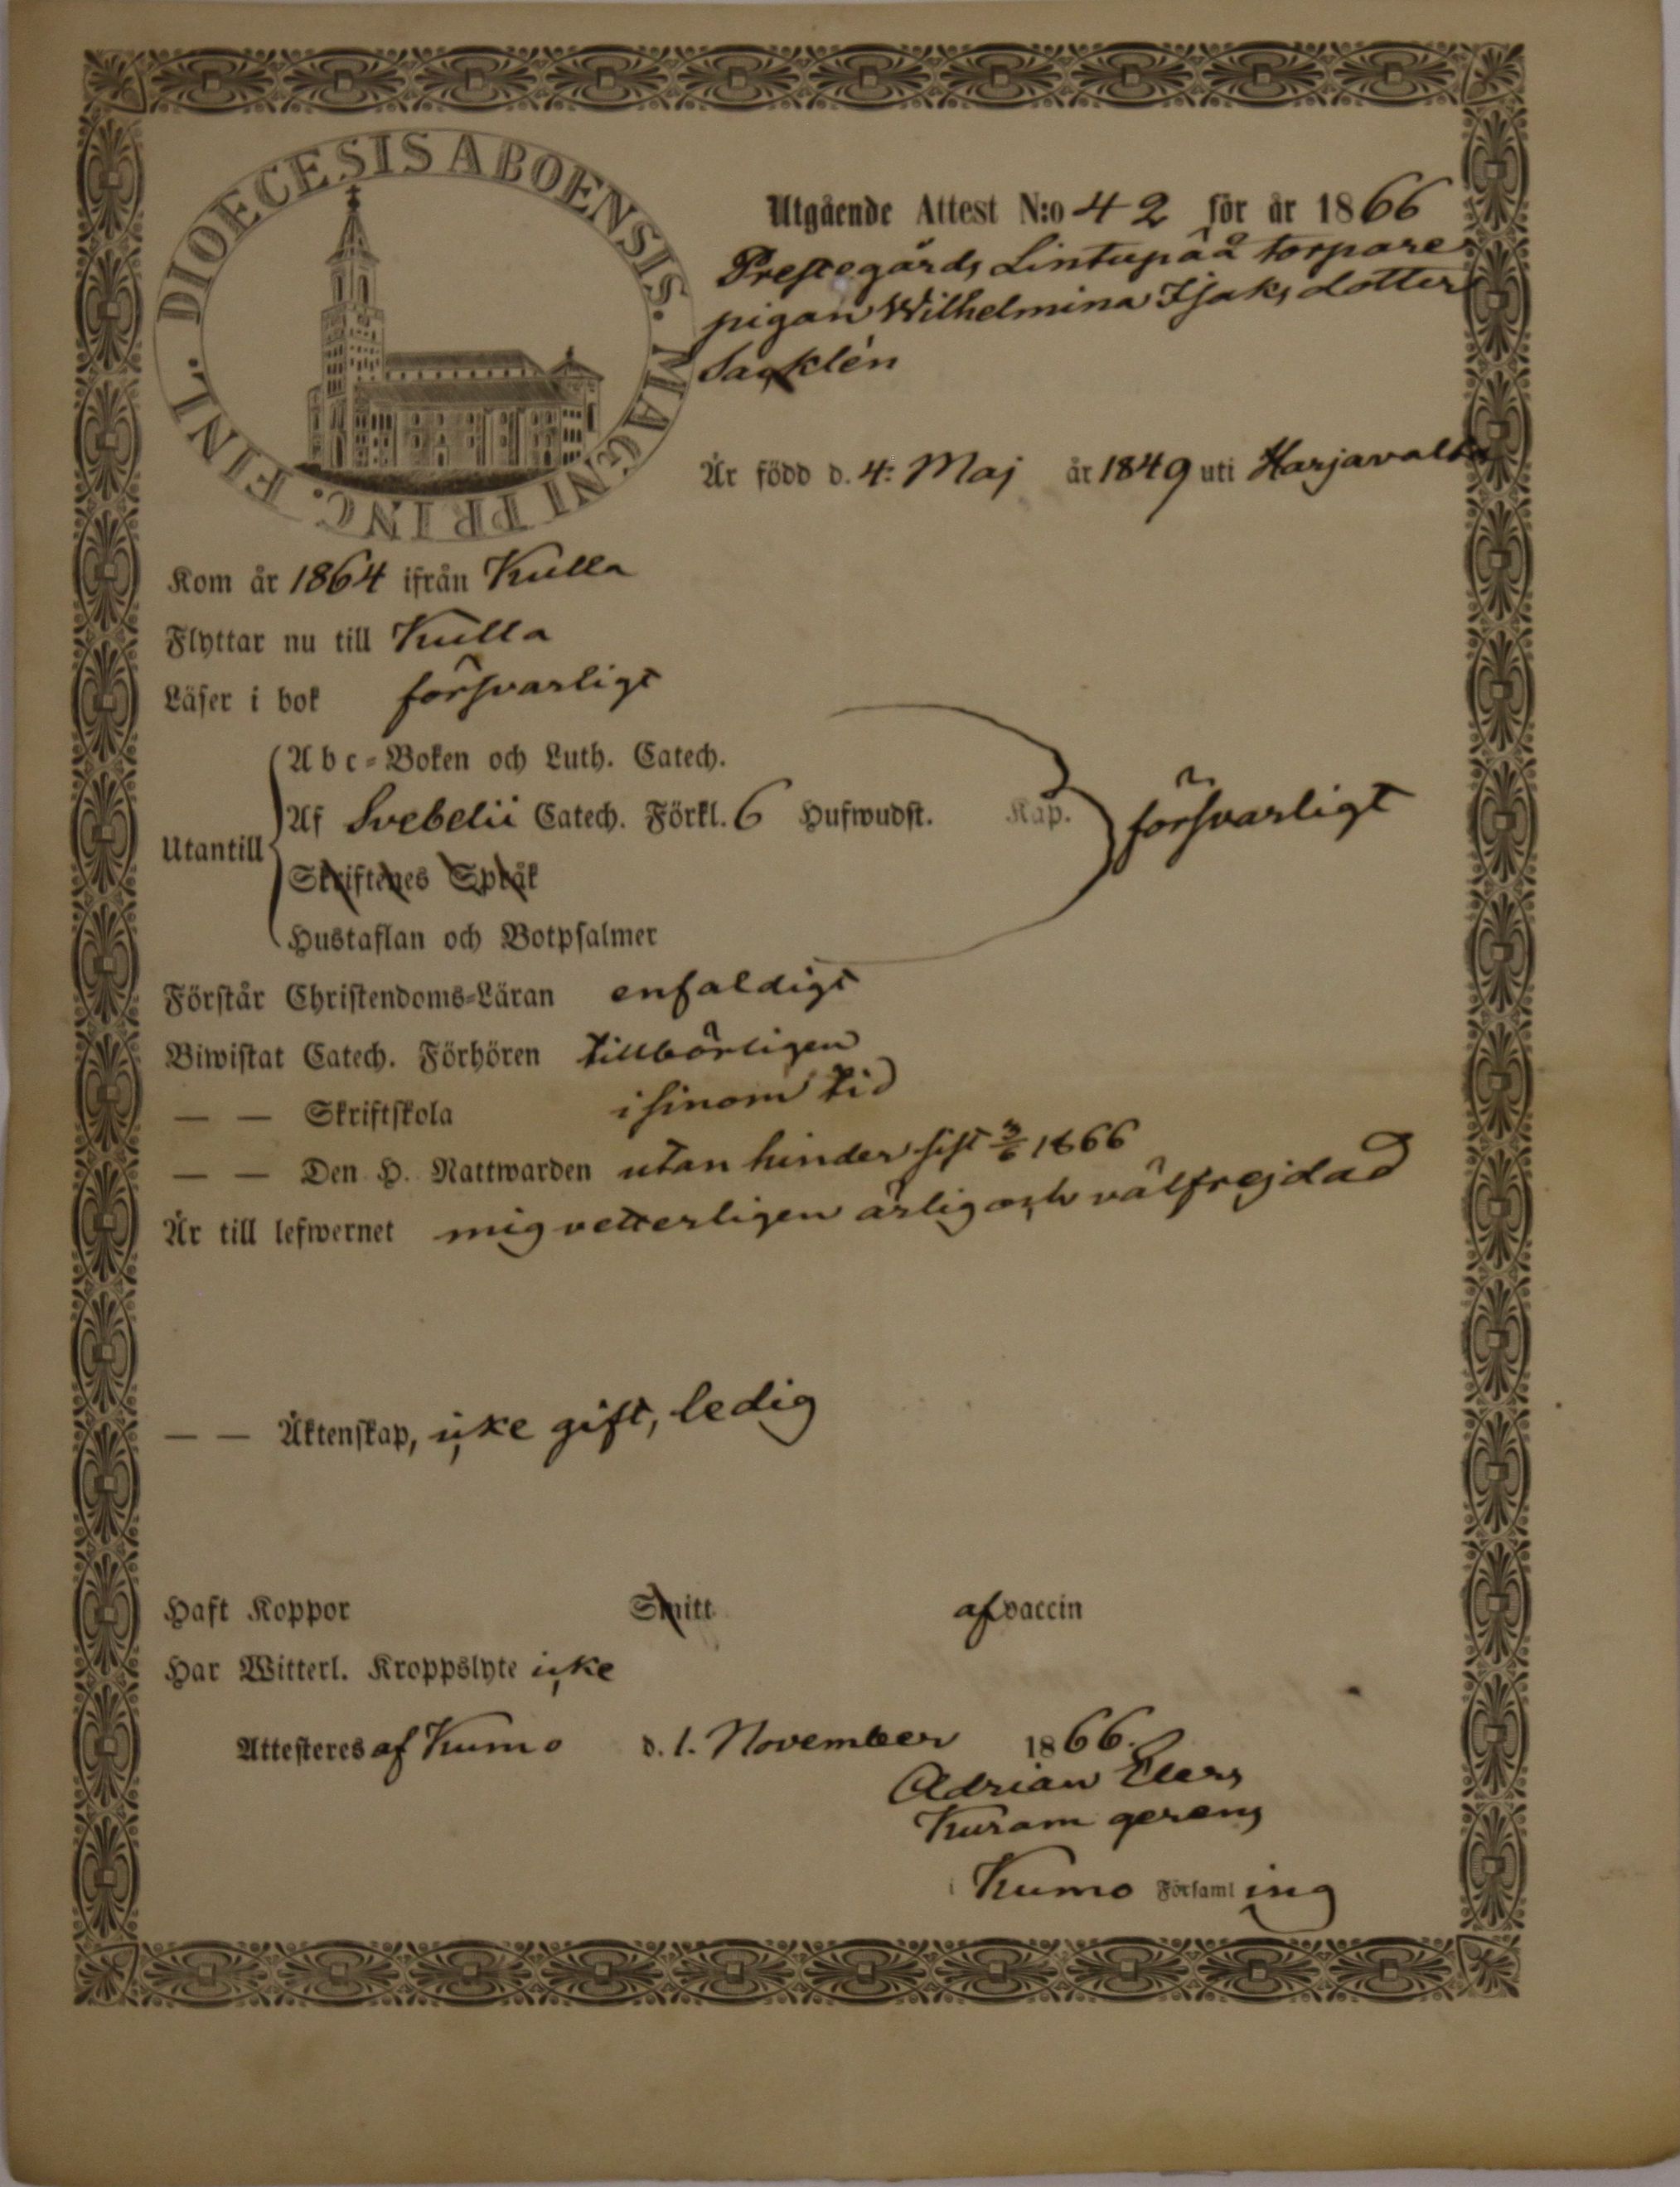 DIOECESIS ABOENSIS. MAGNI PRINC. FINL.
Utgående Attest N:o 42 för år 1866
Prestegårds Lintupää torpare
pigan Wilhelmina Isaks dotter
Sacklén
Är född d. 4: Maj år 1849 uti Harjavalta
Kom år 1864 ifrån Kulla
Flyttar nu till Kulla
Läser i bok försvarligt
Utantill
Abc-Boken och Luth. Catech.
Af Svebelii Catech. Förkl. 6 Hufwudst. Kap. försvarligt
Skriftenes Språk
Hustaflan och Botpsalmer
Förstår Christendoms-Läran enfaldigt
Biwistat Catech. Förhören tillbörligen
— — Skriftskola i sinom tid
— — Den H. Nattwarden utan hinder sist 3/6 1866
Är till lefwernet mig vetterligen ärlig och välfrejdad
— — Äktenskap, icke gift, ledig
Haft Koppor Smitt af vaccin
Har Witterl. Kroppslyte icke
Attesteres af Kumo d. 1. November 1866.
Adrian Elers
Kuram gerens
i Kumo Församling